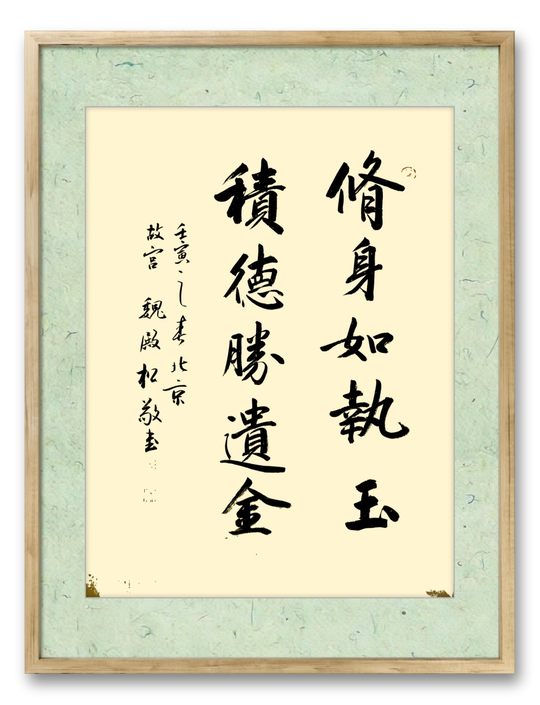 脩身如執玉
積德勝遺金
壬寅之春北京
故宫 魏殿松敬书